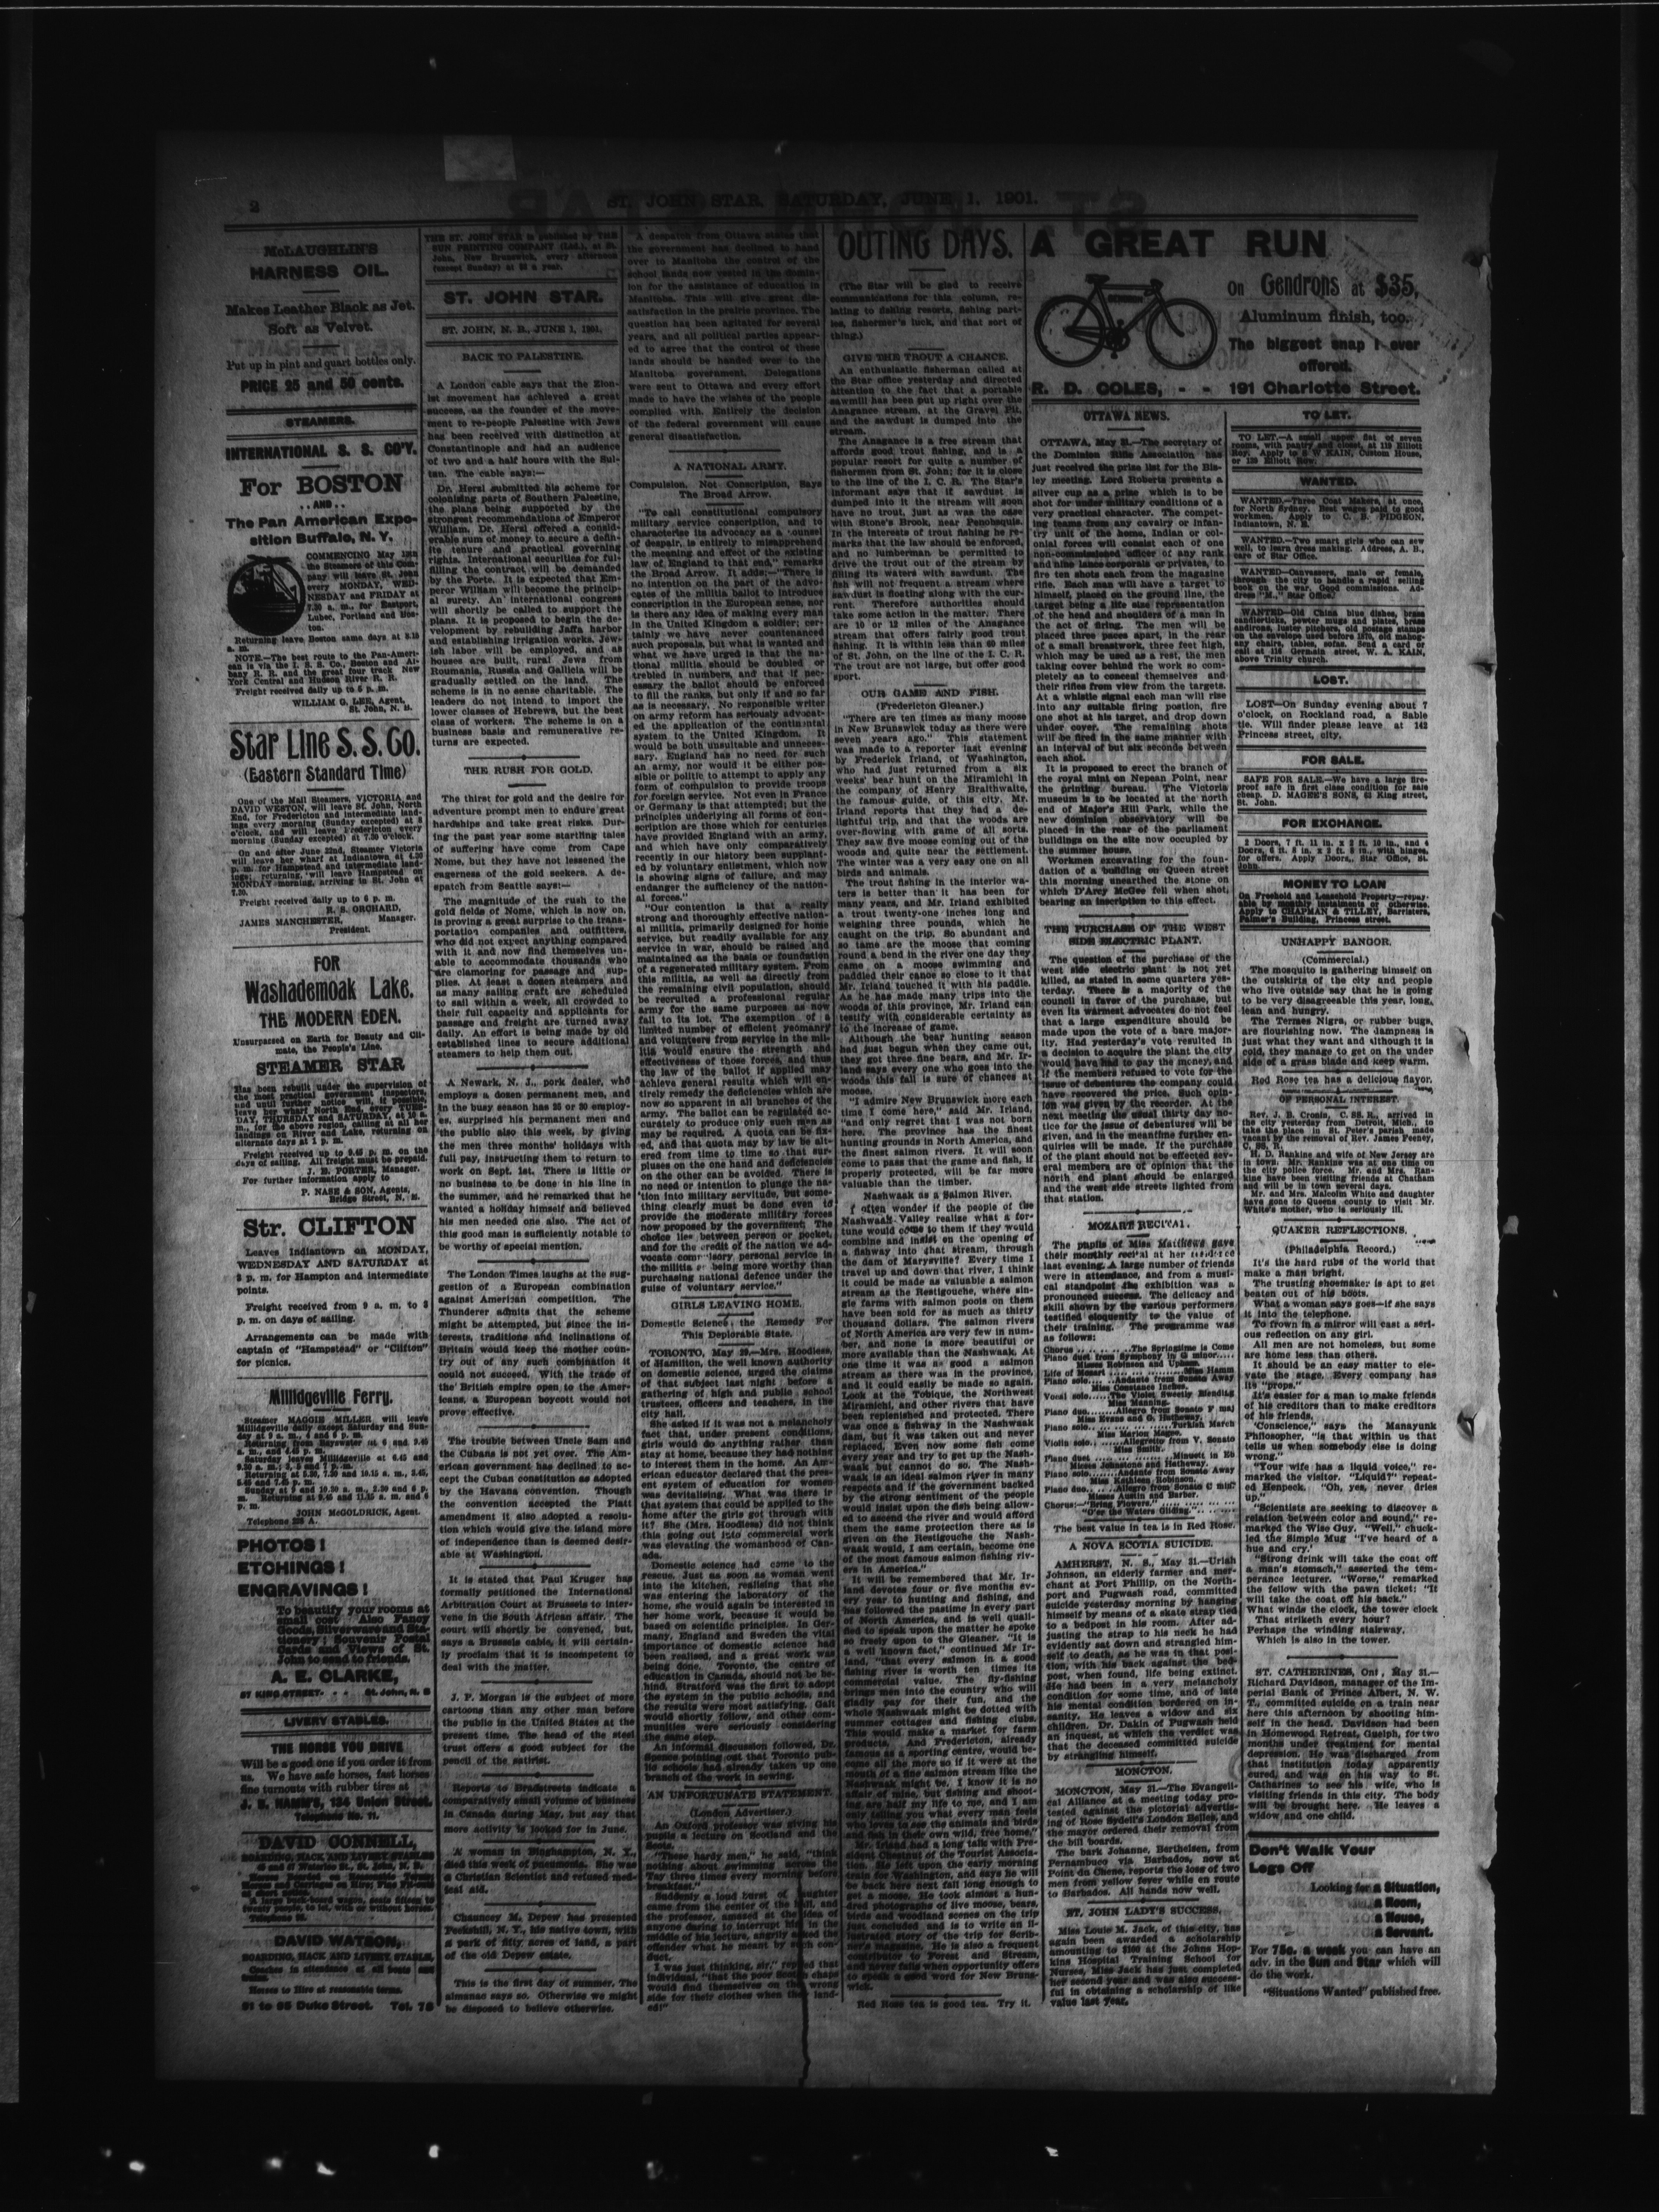 2
ST. JOHN STAR, SATURDAY, JUNE 1, 1901.
McLAUGHLIN'S
HARNESS OIL.
Makes Leather Black as Jet.
Soft as Velvet.
Put up in pint and quart bottles only.
PRICE 25 and 50 cents.
STEAMERS.
INTERNATIONAL S. S. CO'Y.
For BOSTON
..AND..
The Pan American Expo-
sition Buffalo, N. Y.
COMMENCING May 13th
the Steamers of this Com-
pany will leave St. John
every MONDAY, WED-
NESDAY and FRIDAY at
7.30 a. m., for Eastport,
Lubec, Portland and Bos-
ton.
Returning leave Boston same days at 8.15
a. m.
NOTE.—The best route to the Pan-Ameri-
can is via the I. S. S. Co., Boston and Al-
bany R. R. and the great four track New
York Central and Hudson River R. R.
Freight received daily up to 5 p. m.
WILLIAM G. LEE, Agent,
St. John, N. B.
Star Line S. S. Co.
(Eastern Standard Time)
One of the Mail Steamers, VICTORIA and
DAVID WESTON, will leave St. John, North
End, for Fredericton and intermediate land-
ings every morning (Sunday excepted) at 8
o'clock, and will leave Fredericton every
morning (Sunday excepted) at 7.30 o'clock.
On and after June 22nd, Steamer Victoria
will leave her wharf at Indiantown at 4.30
p. m. for Hampstead and intermediate land-
ings; returning, will leave Hampstead on
MONDAY morning, arriving in St. John at
7.30.
Freight received daily up to 6 p. m.
R. S. ORCHARD,
Manager.
JAMES MANCHESTER,
President.
FOR
Washademoak Lake.
THE MODERN EDEN.
Unsurpassed on Earth for Beauty and Cli-
mate, the People's Line.
STEAMER STAR
Has been rebuilt under the supervision of
the most practical government inspectors,
and until further notice will, if possible,
leave her wharf North End, every TUES-
DAY, THURSDAY and SATURDAY, at 10 a.
m., for the above region, calling at all her
landings on River and Lake, returning on
alternate days at 1 p. m.
Freight received up to 9.45 p. m. on the
days of sailing. All freight must be prepaid.
J. E. PORTER, Manager.
For further information apply to
P. NASE & SON, Agents,
Bridge Street, N. E.
Str. CLIFTON
Leaves Indiantown on MONDAY,
WEDNESDAY AND SATURDAY at
3 p. m. for Hampton and intermediate
points.
Freight received from 9 a. m. to 3
p. m. on days of sailing.
Arrangements can be made with
captain of "Hampstead" or "Clifton"
for picnics.
Millidgeville Ferry.
Steamer MAGGIE MILLER will leave
Millidgeville daily except Saturday and Sun-
day at 9 a. m., 4 and 6 p. m.
Returning from Bayswater at 6 and 9.45
a. m., and 4.45 p. m.
Saturday leaves Millidgeville at 6.45 and
9.30 a. m.; 3, 5 and 7 p. m.
Returning at 5.30, 7.30 and 10.15 a. m., 3.45,
5.45 and 7.45 p. m.
Sunday at 9 and 10.30 a. m., 2.30 and 6 p.
m. Returning at 9.45 and 11.15 a. m. and 6
p. m.
JOHN McGOLDRICK, Agent.
Telephone 228 A.
PHOTOS!
ETCHINGS!
ENGRAVINGS!
To beautify your rooms at
small cost. Also Fancy
Goods, Silverware and Sta-
tionery; Souvenir Postal
Cards and Views of St.
John to send to friends.
A. E. CLARKE,
57 KING STREET. - - St. John, N. B
LIVERY STABLES.
THE HORSE YOU DRIVE
Will be a good one if you order it from
us. We have safe horses, fast horses
fine turnouts with rubber tires at
J. B. HAMM'S, 134 Union Street.
Telephone No. 11.
DAVID CONNELL,
BOARDING, HACK AND LIVERY STABLES
45 and 47 Waterloo St., St. John, N. B.
Horses Boarded on Reasonable Terms;
Horses and Carriages on Hire; Fine Fit-outs
at short notice.
A large buck-board wagon, seats fifteen to
twenty people, to let, with or without horses.
Telephone 98.
DAVID WATSON,
BOARDING, HACK AND LIVERY STABLE,
Coaches in attendance at all boats and
trains.
Horses to Hire at reasonable terms.
91 to 95 Duke Street. Tel. 78
THE ST. JOHN STAR is published by THE
SUN PRINTING COMPANY (Ltd.), at St.
John, New Brunswick, every afternoon
(except Sunday) at $3 a year.
ST. JOHN STAR.
ST. JOHN, N. B., JUNE 1, 1901.
BACK TO PALESTINE.
A London cable says that the Zion-
ist movement has achieved a great
success, as the founder of the move-
ment to re-people Palestine with Jews
has been received with distinction at
Constantinople and had an audience
of two and a half hours with the Sul-
tan. The cable says:—
Dr. Herzl submitted his scheme for
colonizing parts of Southern Palestine,
the plans being supported by the
strongest recommendations of Emperor
William. Dr. Herzl offered a consid-
erable sum of money to secure a defin-
ite tenure and practical governing
rights. International securities for ful-
filling the contract, will be demanded
by the Porte. It is expected that Em-
peror William will become the princip-
al surety. An international congress
will shortly be called to support the
plans. It is proposed to begin the de-
velopment by rebuilding Jaffa harbor
and establishing irrigation works. Jew-
ish labor will be employed, and as
houses are built, rural Jews from
Roumania, Russia and Galicia will be
gradually settled on the land. The
scheme is in no sense charitable. The
leaders do not intend to import the
lower classes of Hebrews, but the best
class of workers. The scheme is on a
business basis and remunerative re-
turns are expected.
THE RUSH FOR GOLD.
The thirst for gold and the desire for
adventure prompt men to endure great
hardships and take great risks. Dur-
ing the past year some startling tales
of suffering have come from Cape
Nome, but they have not lessened the
eagerness of the gold seekers. A de-
spatch from Seattle says:—
The magnitude of the rush to the
gold fields of Nome, which is now on,
is proving a great surprise to the trans-
portation companies and outfitters,
who did not expect anything compared
with it and now find themselves un-
able to accommodate thousands who
are clamoring for passage and sup-
plies. At least a dozen steamers and
as many sailing craft are scheduled
to sail within a week, all crowded to
their full capacity and applicants for
passage and freight are turned away
daily. An effort is being made by old
established lines to secure additional
steamers to help them out.
A Newark, N. J., pork dealer, who
employs a dozen permanent men, and
in the busy season has 25 or 30 employ-
es, surprised his permanent men and
the public also this week, by giving
the men three months' holidays with
full pay, instructing them to return to
work on Sept. 1st. There is little or
no business to be done in his line in
the summer, and he remarked that he
wanted a holiday himself and believed
his men needed one also. The act of
this good man is sufficiently notable to
be worthy of special mention.
The London Times laughs at the sug-
gestion of a European combination
against American competition. The
Thunderer admits that the scheme
might be attempted, but since the in-
terests, traditions and inclinations of
Britain would keep the mother coun-
try out of any such combination it
could not succeed. With the trade of
the British empire open to the Amer-
icans, a European boycott would not
prove effective.
The trouble between Uncle Sam and
the Cubans is not yet over. The Am-
erican government has declined to ac-
cept the Cuban constitution as adopted
by the Havana convention. Though
the convention accepted the Platt
amendment it also adopted a resolu-
tion which would give the island more
of independence than is deemed desir-
able at Washington.
It is stated that Paul Kruger has
formally petitioned the International
Arbitration Court at Brussels to inter-
vene in the South African affair. The
court will shortly be convened, but,
says a Brussels cable, it will certain-
ly proclaim that it is incompetent to
deal with the matter.
J. P. Morgan is the subject of more
cartoons than any other man before
the public in the United States at the
present time. The head of the steel
trust offers a good subject for the
pencil of the satirist.
Reports to Bradstreets indicate a
comparatively small volume of business
in Canada during May, but say that
more activity is looked for in June.
A woman in Binghampton, N. Y.,
died this week of pneumonia. She was
a Christian Scientist and refused med-
ical aid.
Chauncey M. Depew has presented
Peekskill, N. Y., his native town, with
a park of fifty acres of land, a part
of the old Depew estate.
This is the first day of summer. The
almanac says so. Otherwise we might
be disposed to believe otherwise.
A despatch from Ottawa states that
the government has declined to hand
over to Manitoba the control of the
school lands now vested in the domin-
ion for the assistance of education in
Manitoba. This will give great dis-
satisfaction in the prairie province. The
question has been agitated for several
years, and all political parties appear-
ed to agree that the control of these
lands should be handed over to the
Manitoba government. Delegations
were sent to Ottawa and every effort
made to have the wishes of the people
complied with. Entirely the decision
of the federal government will cause
general dissatisfaction.
A NATIONAL ARMY.
Compulsion, Not Conscription, Says
The Broad Arrow.
"To call constitutional compulsory
military service conscription, and to
characterize its advocacy as a counsel
of despair, is entirely to misapprehend
the meaning and effect of the existing
law of England to that end," remarks
the Broad Arrow. It adds:—"There is
no intention on the part of the advo-
cates of the militia ballot to introduce
conscription in the European sense, nor
is there any idea of making every man
in the United Kingdom a soldier; cer-
tainly we have never countenanced
such proposals, but what is wanted and
what we have urged is that the na-
tional militia should be doubled or
trebled in numbers, and that if nec-
essary the ballot should be enforced
to fill the ranks, but only if and so far
as is necessary. No responsible writer
on army reform has seriously advocat-
ed the application of the continental
system to the United Kingdom. It
would be both unsuitable and unneces-
sary. England has no need for such
an army, nor would it be either pos-
sible or politic to attempt to apply any
form of compulsion to provide troops
for foreign service. Not even in France
or Germany is that attempted; but the
principles underlying all forms of con-
scription are those which for centuries
have provided England with an army,
and which have only comparatively
recently in our history been supplant-
ed by voluntary enlistment, which now
is showing signs of failure, and may
endanger the sufficiency of the nation-
al forces."
"Our contention is that a really
strong and thoroughly effective nation-
al militia, primarily designed for home
service, but readily available for any
service in war, should be raised and
maintained as the basis or foundation
of a regenerated military system. From
this militia, as well as directly from
the remaining civil population, should
be recruited a professional regular
army for the same purposes as now
fall to its lot. The exemption of a
limited number of efficient yeomanry
and volunteers from service in the mil-
itia would ensure the strength and
effectiveness of those forces, and thus
the law of the ballot if applied may
achieve general results which will en-
tirely remedy the deficiencies which are
now so apparent in all branches of the
army. The ballot can be regulated ac-
curately to produce only such men as
may be required. A quota can be fix-
ed, and that quota may by law be alt-
ered from time to time so that sur-
pluses on the one hand and deficiencies
on the other can be avoided. There is
no need or intention to plunge the na-
tion into military servitude, but some-
thing clearly must be done even to
provide the moderate military forces
now proposed by the government. The
choice lies between person or pocket,
and for the credit of the nation we ad-
vocate compulsory personal service in
the militia as being more worthy than
purchasing national defence under the
guise of voluntary service."
GIRLS LEAVING HOME.
Domestic Science, the Remedy For
This Deplorable State.
TORONTO, May 29.—Mrs. Hoodless,
of Hamilton, the well known authority
on domestic science, urged the claims
of that subject last night before a
gathering of high and public school
trustees, officers and teachers, in the
city hall.
She asked if it was not a melancholy
fact that, under present conditions,
girls would do anything rather than
stay at home, because they had nothing
to interest them in the home. An Am-
erican educator declared that the pres-
ent system of education for women
was devitalising. What was there in
that system that could be applied to the
home after the girls got through with
it? She (Mrs. Hoodless) did not think
this going out into commercial work
was elevating the womanhood of Can-
ada.
Domestic science had come to the
rescue. Just as soon as woman went
into the kitchen, realizing that she
was entering the laboratory of the
home, she would again be interested in
her home work, because it would be
based on scientific principles. In Ger-
many, England and Sweden the vital
importance of domestic science had
been realised, and a great work was
being done. Toronto, the centre of
education in Canada, should not be be-
hind. Stratford was the first to adopt
the system in the public schools, and
the results were most satisfying. Galt
would shortly follow, and other com-
munities were seriously considering
the same step.
An informal discussion followed, Dr.
Spence pointing out that Toronto pub-
lic schools had already taken up one
branch of the work in sewing.
AN UNFORTUNATE STATEMENT.
(London Advertiser.)
An Oxford professor was giving his
pupils a lecture on Scotland and the
Scots.
"These hardy men," he said, "think
nothing about swimming across the
Tay three times every morning before
breakfast."
Suddenly a loud burst of laughter
came from the center of the hall, and
the professor, amazed at the idea of
anyone daring to interrupt him in the
middle of his lecture, angrily asked the
offender what he meant by such con-
duct.
I was just thinking, sir," replied that
individual, "that the poor Scotch chaps
would find themselves on the wrong
side for their clothes when they land-
ed!"
OUTING DAYS.
(The Star will be glad to receive
communications for this column, re-
lating to fishing resorts, fishing part-
ies, fishermen's luck, and that sort of
thing.)
GIVE THE TROUT A CHANCE.
An enthusiastic fisherman called at
the Star office yesterday and directed
attention to the fact that a portable
sawmill has been put up right over the
Anagance stream, at the Gravel Pit,
and the sawdust is dumped into the
stream.
The Anagance is a free stream that
affords good trout fishing, and is a
popular resort for quite a number of
fishermen from St. John; for it is close
to the line of the I. C. R. The Star's
informant says that if sawdust is
dumped into it the stream will soon
have no trout, just as was the case
with Stone's Brook, near Penobsquis.
In the interests of trout fishing he re-
marks that the law should be enforced,
and no lumberman be permitted to
drive the trout out of the stream by
filling its waters with sawdust. The
fish will not frequent a stream where
sawdust is floating along with the cur-
rent. Therefore authorities should
take some action in the matter. There
are 10 or 12 miles of the Anagance
stream that offers fairly good trout
fishing. It is within less than 60 miles
of St. John, on the line of the I. C. R.
The trout are not large, but offer good
sport.
OUR GAME AND FISH.
(Fredericton Gleaner.)
"There are ten times as many moose
in New Brunswick today as there were
seven years ago." This statement
was made to a reporter last evening
by Frederick Irland, of Washington,
who had just returned from a six
weeks' bear hunt on the Miramichi in
the company of Henry Braithwaite,
the famous guide, of this city. Mr.
Irland reports that they had a de-
lightful trip, and that the woods are
over-flowing with game of all sorts.
They saw five moose coming out of the
woods and quite near the settlement.
The winter was a very easy one on all
birds and animals.
The trout fishing in the interior wa-
ters is better than it has been for
many years, and Mr. Irland exhibited
a trout twenty-one inches long and
weighing three pounds, which he
caught on the trip. So abundant and
so tame are the moose that coming
round a bend in the river one day they
came on a moose swimming and
paddled their canoe so close to it that
Mr. Irland touched it with his paddle.
As he has made many trips into the
woods of this province, Mr. Irland can
testify with considerable certainty as
to the increase of game.
Although the bear hunting season
had just begun when they came out,
they got three fine bears, and Mr. Ir-
land says every one who goes into the
woods this fall is sure of chances at
moose.
"I admire New Brunswick more each
time I come here," said Mr. Irland,
"and only regret that I was not born
here. The province has the finest
hunting grounds in North America, and
the finest salmon rivers. It will soon
come to pass that the game and fish, if
properly protected, will be far more
valuable than the timber.
Nashwaak as a Salmon River.
I often wonder if the people of the
Nashwaak Valley realize what a for-
tune would come to them if they would
combine and insist on the opening of
a fishway into that stream, through
the dam of Marysville? Every time I
travel up and down that river, I think
it could be made as valuable a salmon
stream as the Restigouche, where sin-
gle farms with salmon pools on them
have been sold for as much as thirty
thousand dollars. The salmon rivers
of North America are very few in num-
ber, and none is more beautiful or
more available than the Nashwaak. At
one time it was as good a salmon
stream as there was in the province,
and it could easily be made so again.
Look at the Tobique, the Northwest
Miramichi, and other rivers that have
been replenished and protected. There
was once a fishway in the Nashwaak
dam, but it was taken out and never
replaced. Even now some fish come
every year and try to get up the Nash-
waak but cannot do so. The Nash-
waak is an ideal salmon river in many
respects and if the government backed
by the strong sentiment of the people
would insist upon the fish being allow-
ed to ascend the river and would afford
them the same protection there as is
given on the Restigouche the Nash-
waak would, I am certain, become one
of the most famous salmon fishing riv-
ers in America."
It will be remembered that Mr. Ir-
land devotes four or five months ev-
ery year to hunting and fishing, and
has followed the pastime in every part
of North America, and is well quali-
fied to speak upon the matter he spoke
so freely upon to the Gleaner. "It is
a well known fact," continued Mr Ir-
land, "that every salmon in a good
fishing river is worth ten times its
commercial value. The fly-fishing
brings men into the country who will
gladly pay for their fun, and the
whole Nashwaak might be dotted with
summer cottages and fishing clubs.
This would make a market for farm
products. And Fredericton, already
famous as a sporting centre, would be-
come all the more so if it were at the
mouth of a fine salmon stream like the
Nashwaak might be. I know it is no
affair of mine, but fishing and shoot-
ing are half my life to me, and I am
only telling you what every man feels
who loves to see the animals and birds
and fish in their own wild, free home."
Mr. Irland had a long talk with Pre-
sident Chestnut of the Tourist Associa-
tion. He left upon the early morning
train for Washington, and says he will
be back here next fall long enough to
get a moose. He took almost a hun-
dred photographs of live moose, bears,
birds and woodland scenes on the trip
just concluded and is to write an il-
lustrated story of the trip for Scrib-
ner's magazine. He is also a frequent
contributor to Forest and Stream,
and never fails when opportunity offers
to speak a good word for New Bruns-
wick.
Red Rose tea is good tea. Try it.
A GREAT RUN
On Gendrons at $35,
Aluminum finish, too.
The biggest snap I ever
offered.
R. D. COLES, - - 191 Charlotte Street.
OTTAWA NEWS.
OTTAWA, May 31.—The secretary of
the Dominion Rifle Association has
just received the prize list for the Bis-
ley meeting. Lord Roberts presents a
silver cup as a prize which is to be
shot for under military conditions of a
very practical character. The compet-
ing teams from any cavalry or infan-
try unit of the home, Indian or col-
onial forces will consist each of one
non-commissioned officer of any rank
and nine lance corporals or privates, to
fire ten shots each from the magazine
rifle. Each man will have a target to
himself, placed on the ground line, the
target being a life size representation
of the head and shoulders of a man in
the act of firing. The men will be
placed three paces apart, in the rear
of a small breastwork, three feet high,
which may be used as a rest, the men
taking cover behind the work so com-
pletely as to conceal themselves and
their rifles from view from the targets.
At a whistle signal each man will rise
into any suitable firing postion, fire
one shot at his target, and drop down
under cover. The remaining shots
will be fired in the same manner with
an interval of but six seconds between
each shot.
It is proposed to erect the branch of
the royal mint on Nepean Point, near
the printing bureau. The Victoria
museum is to be located at the north
end of Major's Hill Park, while the
new dominion observatory will be
placed in the rear of the parliament
buildings on the site now occupied by
the summer house.
Workmen excavating for the foun-
dation of a building on Queen street
this morning unearthed the stone on
which D'Arcy McGee fell when shot,
bearing an inscription to this effect.
THE PURCHASE OF THE WEST
SIDE ELECTRIC PLANT.
The question of the purchase of the
west side electric plant is not yet
killed, as stated in some quarters yes-
terday. There is a majority of the
council in favor of the purchase, but
even its warmest advocates do not feel
that a large expenditure should be
made upon the vote of a bare major-
ity. Had yesterday's vote resulted in
a decision to acquire the plant the city
would have had to pay the money, and
if the members refused to vote for the
issue of debentures the company could
have recovered the price. Such opin-
ion was given by the recorder. At the
next meeting the usual thirty day no-
tice for the issue of debentures will be
given, and in the meantime further en-
quiries will be made. If the purchase
of the plant should not be effected sev-
eral members are of opinion that the
north end plant should be enlarged
and the west side streets lighted from
that station.
MOZART RECITAL.
The pupils of Miss Matthews gave
their monthly recital at her residence
last evening. A large number of friends
were in attendance, and from a musi-
cal standpoint the exhibition was a
pronounced success. The delicacy and
skill shown by the various performers
testified eloquently to the value of
their training. The programme was
as follows:
Chorus .. .. ..The Springtime is Come
Piano duet from Symphony in G minor....
Misses Robinson and Upham.
Life of Mozart .. .. .. ..Miss Hamm
Piano solo.. .. ..Andante from Sonato Away
Miss Constance Inches.
Vocal solo.....The Violet Sweetly Blending
Miss Manning.
Piano duo.......Allegro from Sonato F maj
Miss Evans and G. Hatheway.
Piano solo.. .. .. .. .. ..Turkish March
Miss Marion Magee.
Violin solo.. .. ..Allegretto from V. Sonato
Miss Smith.
Piano duet .. .. .. .. ..Minuett in Eb
Misses Johnstone and Hatheway.
Piano solo.......Andante from Sonato Away
Miss Kathleen Robinson.
Piano duo.. ..Allegro from Sonato C min
Misses Austin and Barber.
Chorus:—"Bring Flowers." .. .. .. ..
"O'er the Waters Gliding."
The best value in tea is in Red Rose.
A NOVA SCOTIA SUICIDE.
AMHERST, N. S., May 31.—Uriah
Johnson, an elderly farmer and mer-
chant at Port Phillip, on the North-
port and Pugwash road, committed
suicide yesterday morning by hanging
himself by means of a skate strap tied
to a bedpost in his room. After ad-
justing the strap to his neck he had
evidently sat down and strangled him-
self to death, as he was in that posi-
tion, with his back against the bed-
post, when found, life being extinct.
He had been in a very melancholy
condition for some time, and of late
his mental condition bordered on in-
sanity. He leaves a widow and six
children. Dr. Dakin of Pugwash held
an inquest, at which the verdict was
that the deceased committed suicide
by strangling himself.
MONCTON.
MONCTON, May 31.—The Evangeli-
cal Alliance at a meeting today pro-
tested against the pictorial advertis-
ing of Rose Sydell's London Belles, and
the mayor ordered their removal from
the bill boards.
The bark Johanne, Berthelsen, from
Pernambuco via Barbados, now at
Point du Chene, reports the loss of two
men from yellow fever while en route
to Barbados. All hands now well.
ST. JOHN LADY'S SUCCESS.
Miss Louie M. Jack, of this city, has
again been awarded a scholarship
amounting to $100 at the Johns Hop-
kins Hospital Training School for
Nurses. Miss Jack has just completed
her second year and was also success-
ful in obtaining a scholarship of like
value last year.
TO LET.
TO LET.—A small upper flat of seven
rooms, with pantry and closet, at 119 Elliott
Row. Apply to S W KAIN, Custom House,
or 129 Elliott Row.
WANTED.
WANTED—Three Coat Makers, at once,
for North Sydney. Best wages paid to good
workmen. Apply to C. B. PIDGEON,
Indiantown, N. B.
WANTED.—Two smart girls who can sew
well, to learn dress making. Address, A. B.,
care of Star Office.
WANTED—Canvassers, male or female,
through the city to handle a rapid selling
book on the war. Good commissions. Ad-
dress "M.," Star Office.
WANTED—Old China blue dishes, brass
candlesticks, pewter mugs and plates, brass
andirons, luster pitchers, old postage stamps
on the envelope used before 1870, old mahog-
any chairs, tables, sofas. Send a card or
call at 116 Germain street, W. A. KAIN,
above Trinity church.
LOST.
LOST—On Sunday evening about 7
o'clock, on Rockland road, a Sable
tie. Will finder please leave at 142
Princess street, city.
FOR SALE.
SAFE FOR SALE.—We have a large fire-
proof safe in first class condition for sale
cheap. D. MAGEE'S SONS, 63 King street,
St. John.
FOR EXCHANGE.
2 Doors, 7 ft. 11 in. x 2 ft. 10 in., and 4
Doors, 6 ft. 8 in. x 2 ft. 8 in., with hinges,
for offers. Apply Doors,, Star Office, St.
John.
MONEY TO LOAN
On Freehold and Leasehold Property—repay-
able by monthly instalments or otherwise.
Apply to CHAPMAN & TILLEY, Barristers,
Palmer's Building, Princess street.
UNHAPPY BANGOR.
(Commercial.)
The mosquito is gathering himself on
the outskirts of the city and people
who live outside say that he is going
to be very disagreeable this year, long,
lean and hungry.
The Termes Nigra, or rubber bugs,
are flourishing now. The dampness is
just what they want and although it is
cold, they manage to get on the under
side of a grass blade and keep warm.
Red Rose tea has a delicious flavor.
OF PERSONAL INTEREST.
Rev. J. B. Cronin, C. SS. R., arrived in
the city yesterday from Detroit, Mich., to
take the place in St. Peter's parish made
vacant by the removal of Rev. James Feeney,
C. SS. R.
H. D. Rankine and wife of New Jersey are
in town. Mr. Rankine was at one time on
the city police force. Mr. and Mrs. Ran-
kine have been visiting friends at Chatham
and will be in town several days.
Mr. and Mrs. Malcolm White and daughter
have gone to Queens county to visit Mr.
White's mother, who is seriously ill.
QUAKER REFLECTIONS.
(Philadelphia Record.)
It's the hard rubs of the world that
make a man bright.
The trusting shoemaker is apt to get
beaten out of his boots.
What a woman says goes—if she says
it into the telephone.
To frown in a mirror will cast a seri-
ous reflection on any girl.
All men are not homeless, but some
are home less than others.
It should be an easy matter to ele-
vate the stage. Every company has
its "props."
It's easier for a man to make friends
of his creditors than to make creditors
of his friends.
'Conscience," says the Manayunk
Philosopher, "is that within us that
tells us when somebody else is doing
wrong."
"Your wife has a liquid voice," re-
marked the visitor. "Liquid?" repeat-
ed Henpeck. "Oh, yes, never dries
up."
"Scientists are seeking to discover a
relation between color and sound," re-
marked the Wise Guy. "Well," chuck-
led the Simple Mug "I've heard of a
hue and cry.'
"Strong drink will take the coat off
a man's stomach," asserted the tem-
perance lecturer. "Worse," remarked
the fellow with the pawn ticket: "It
will take the coat off his back."
What winds the clock, the tower clock
That striketh every hour?
Perhaps the winding stairway,
Which is also in the tower.
ST. CATHERINES, Ont, May 31.—
Richard Davidson, manager of the Im-
perial Bank of Prince Albert, N. W.
T., committed suicide on a train near
here this afternoon by shooting him-
self in the head. Davidson had been
in Homewood Retreat, Guelph, for two
months under treatment for mental
depression. He was discharged from
that institution today apparently
cured, and was on his way to St.
Catharines to see his wife, who is
visiting friends in this city. The body
will be brought here. He leaves a
widow and one child.
Don't Walk Your
Legs Off
Looking for a Situation,
a Room,
a House,
a Servant.
For 75c. a week you can have an
adv. in the Sun and Star which will
do the work.
"Situations Wanted" published free.